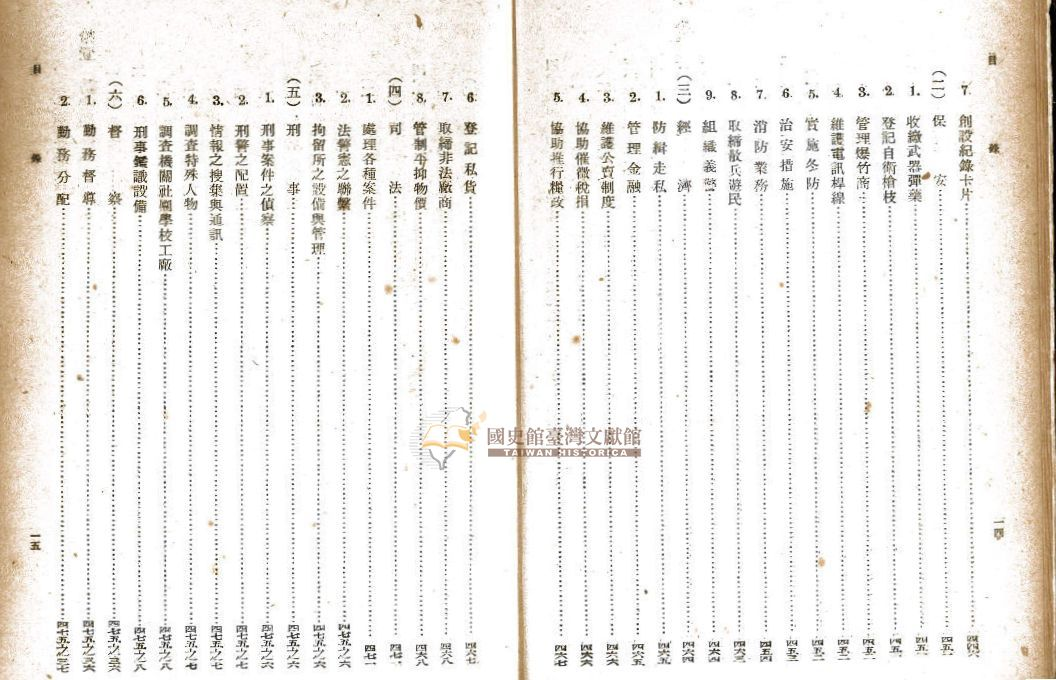 目　錄
7. 創設紀錄卡片……四四六
(二)保　安……四五一
1. 收繳武器彈藥……四五一
2. 登記自衛槍枝……四五一
3. 管理爆竹商……四五一
4. 維護電訊桿線……四五二
5. 實施冬防……四五二
6. 治安措施……四五三
7. 消防業務……四五四
8. 取締散兵遊民……四六三
9. 組織義警……四六四
(三)經　濟……四六四
1. 防緝走私……四六五
2. 管理金融……四六五
3. 維護公賣制度……四六六
4. 協助催徵稅捐……四六六
5. 協助推行糧政……四六七
一四
6. 登記私貨……四六七
7. 取締非法廠商……四六八
8. 管制平抑物價……四六八
(四)司　法……四七一
1. 處理各種案件……四七一
2. 法警憲之聯繫……四七五之六
3. 拘留所之設備與管理……四七五之六
(五)刑　事……四七五之六
1. 刑事案件之偵察……四七五之六
2. 刑警之配置……四七五之七
3. 情報之搜集與通訊……四七五之七
4. 調查特殊人物……四七五之七
5. 調查機關社團學校工廠……四七五之八
6. 刑事鑑識設備……四七五之八
(六)督　察……四七五之三六
1. 勤務督導……四七五之三六
2. 勤務分配……四七五之三七
目　錄
一五
國史館臺灣文獻館
TAIWAN HISTORICA